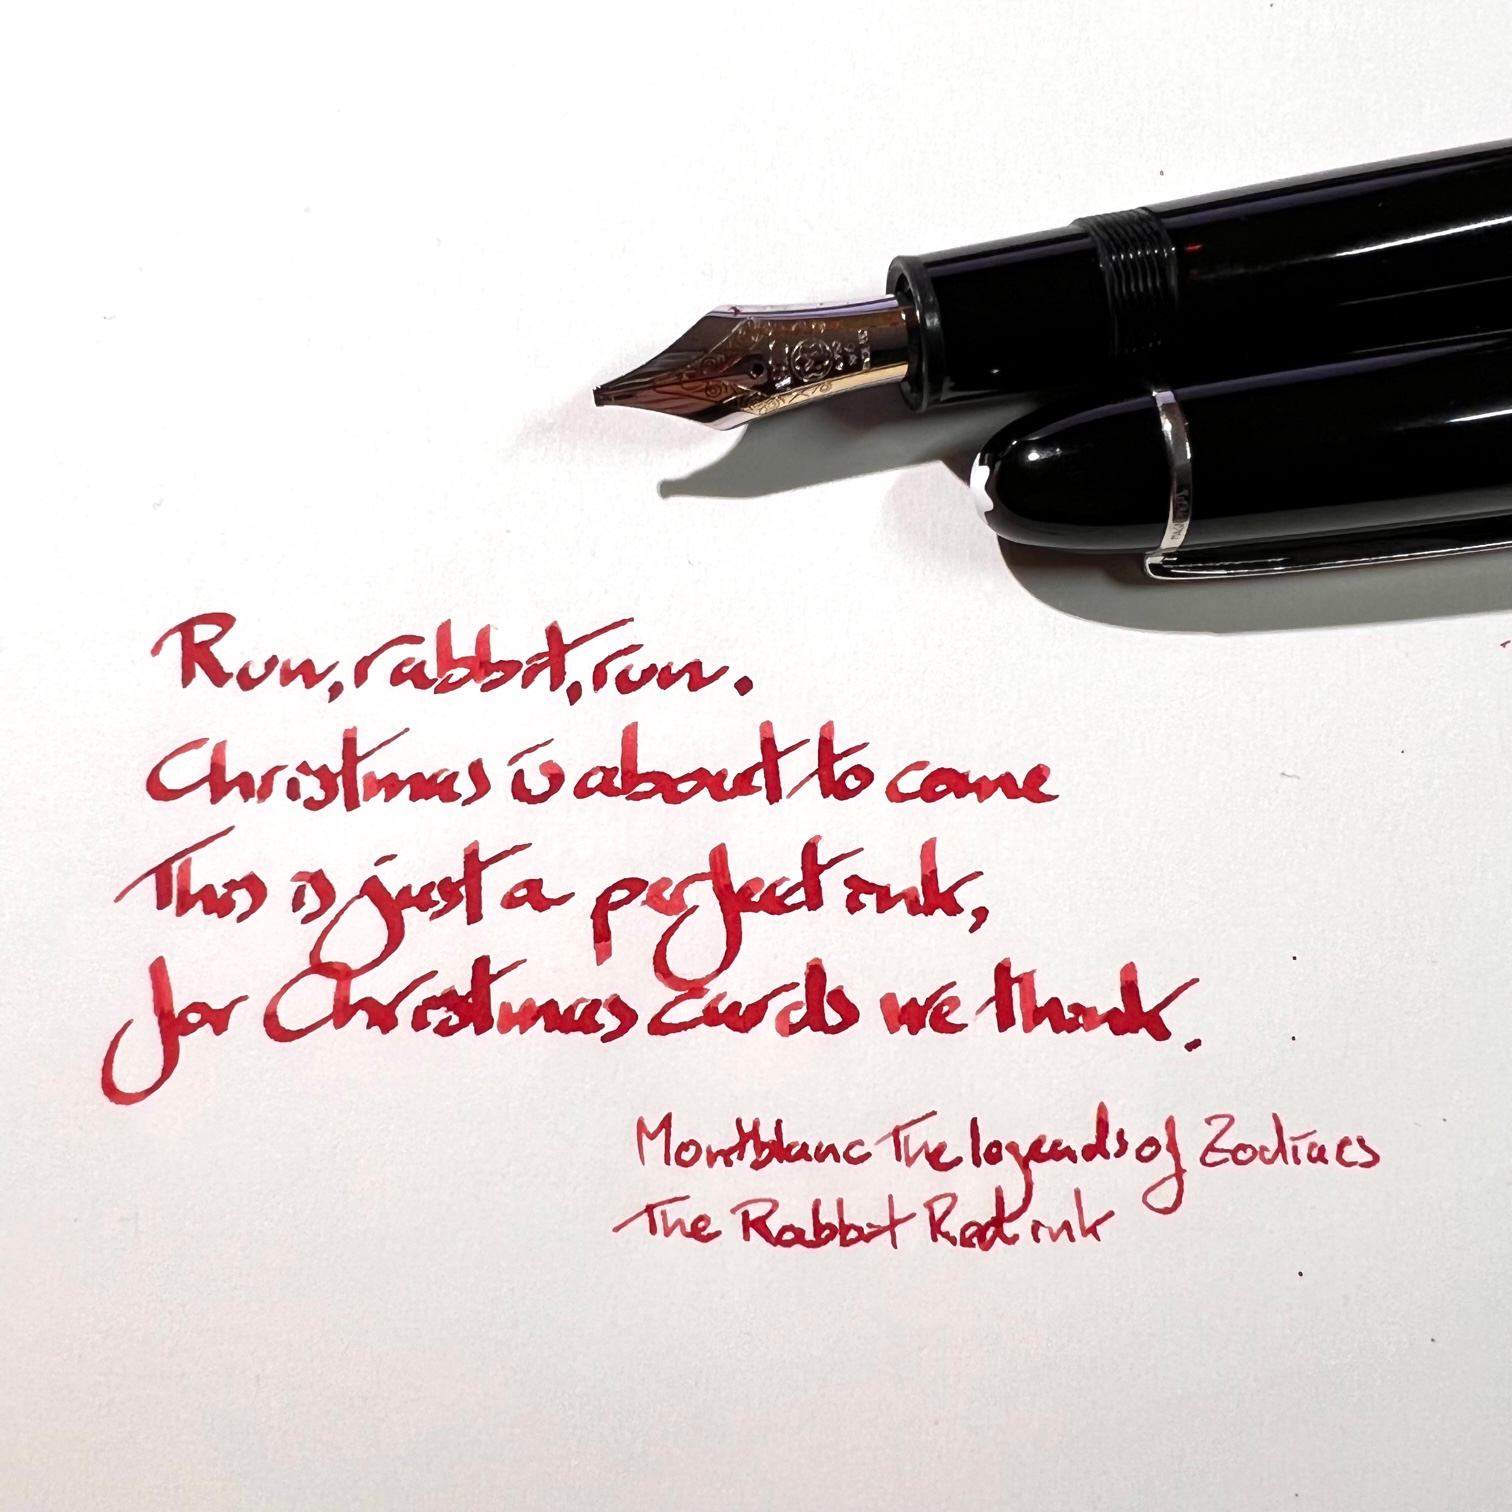 Run, rabbit, run.
Christmas is about to come
This is just a perfect ink,
for Christmas cards we think.
Montblanc The legends of Zodiacs
The Rabbit Red ink